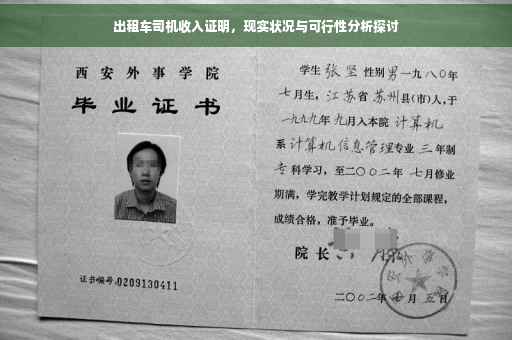 出租车司机收入证明，现实状况与可行性分析探讨
西安外事学院
毕业证书
证书编号:0209130411
学生 张坚 性别 男 一九八〇年
七月生，江苏省 苏州县(市)人,于
一九九九年 九月入本院 计算机
系 计算机信息管理专业 三 年制
专科学习，至二〇〇二年 七月修业
期满，学完教学计划规定的全部课程，
成绩合格，准予毕业。
院长
二〇〇二年 月五日